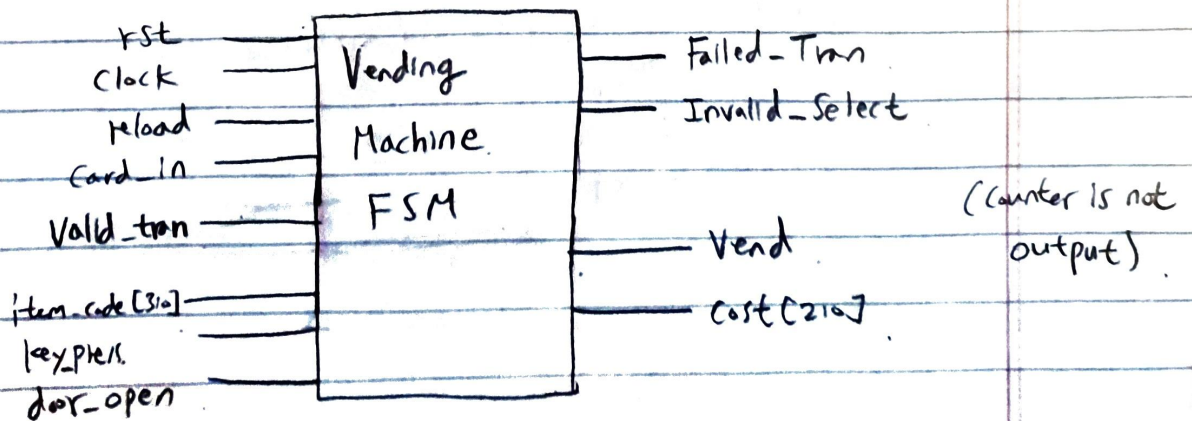 rst
Clock
reload
Card_in
Valid_tran
item_code[3:0]
key_press
door_open
Vending
Machine
FSM
Failed_Tran
Invalid_Select
Vend
Cost[2:0]
(Counter is not
output)